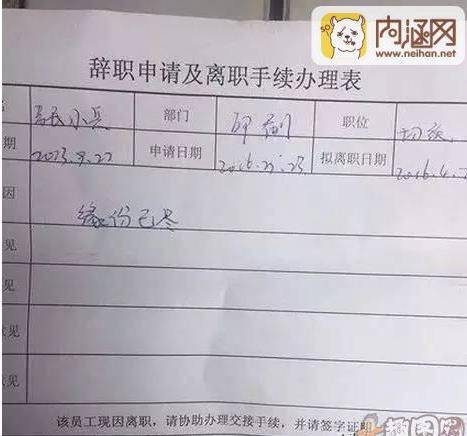 SO
内涵网
www.neihan.net
辞职申请及离职手续办理表
小兵 部门 印刷 职位
期 2013.9.27 申请日期 拟离职日期 2016.4.
因 缘份已尽
见
见
见
见
该员工现因离职，请协助办理交接手续，并请签字证明
趣图